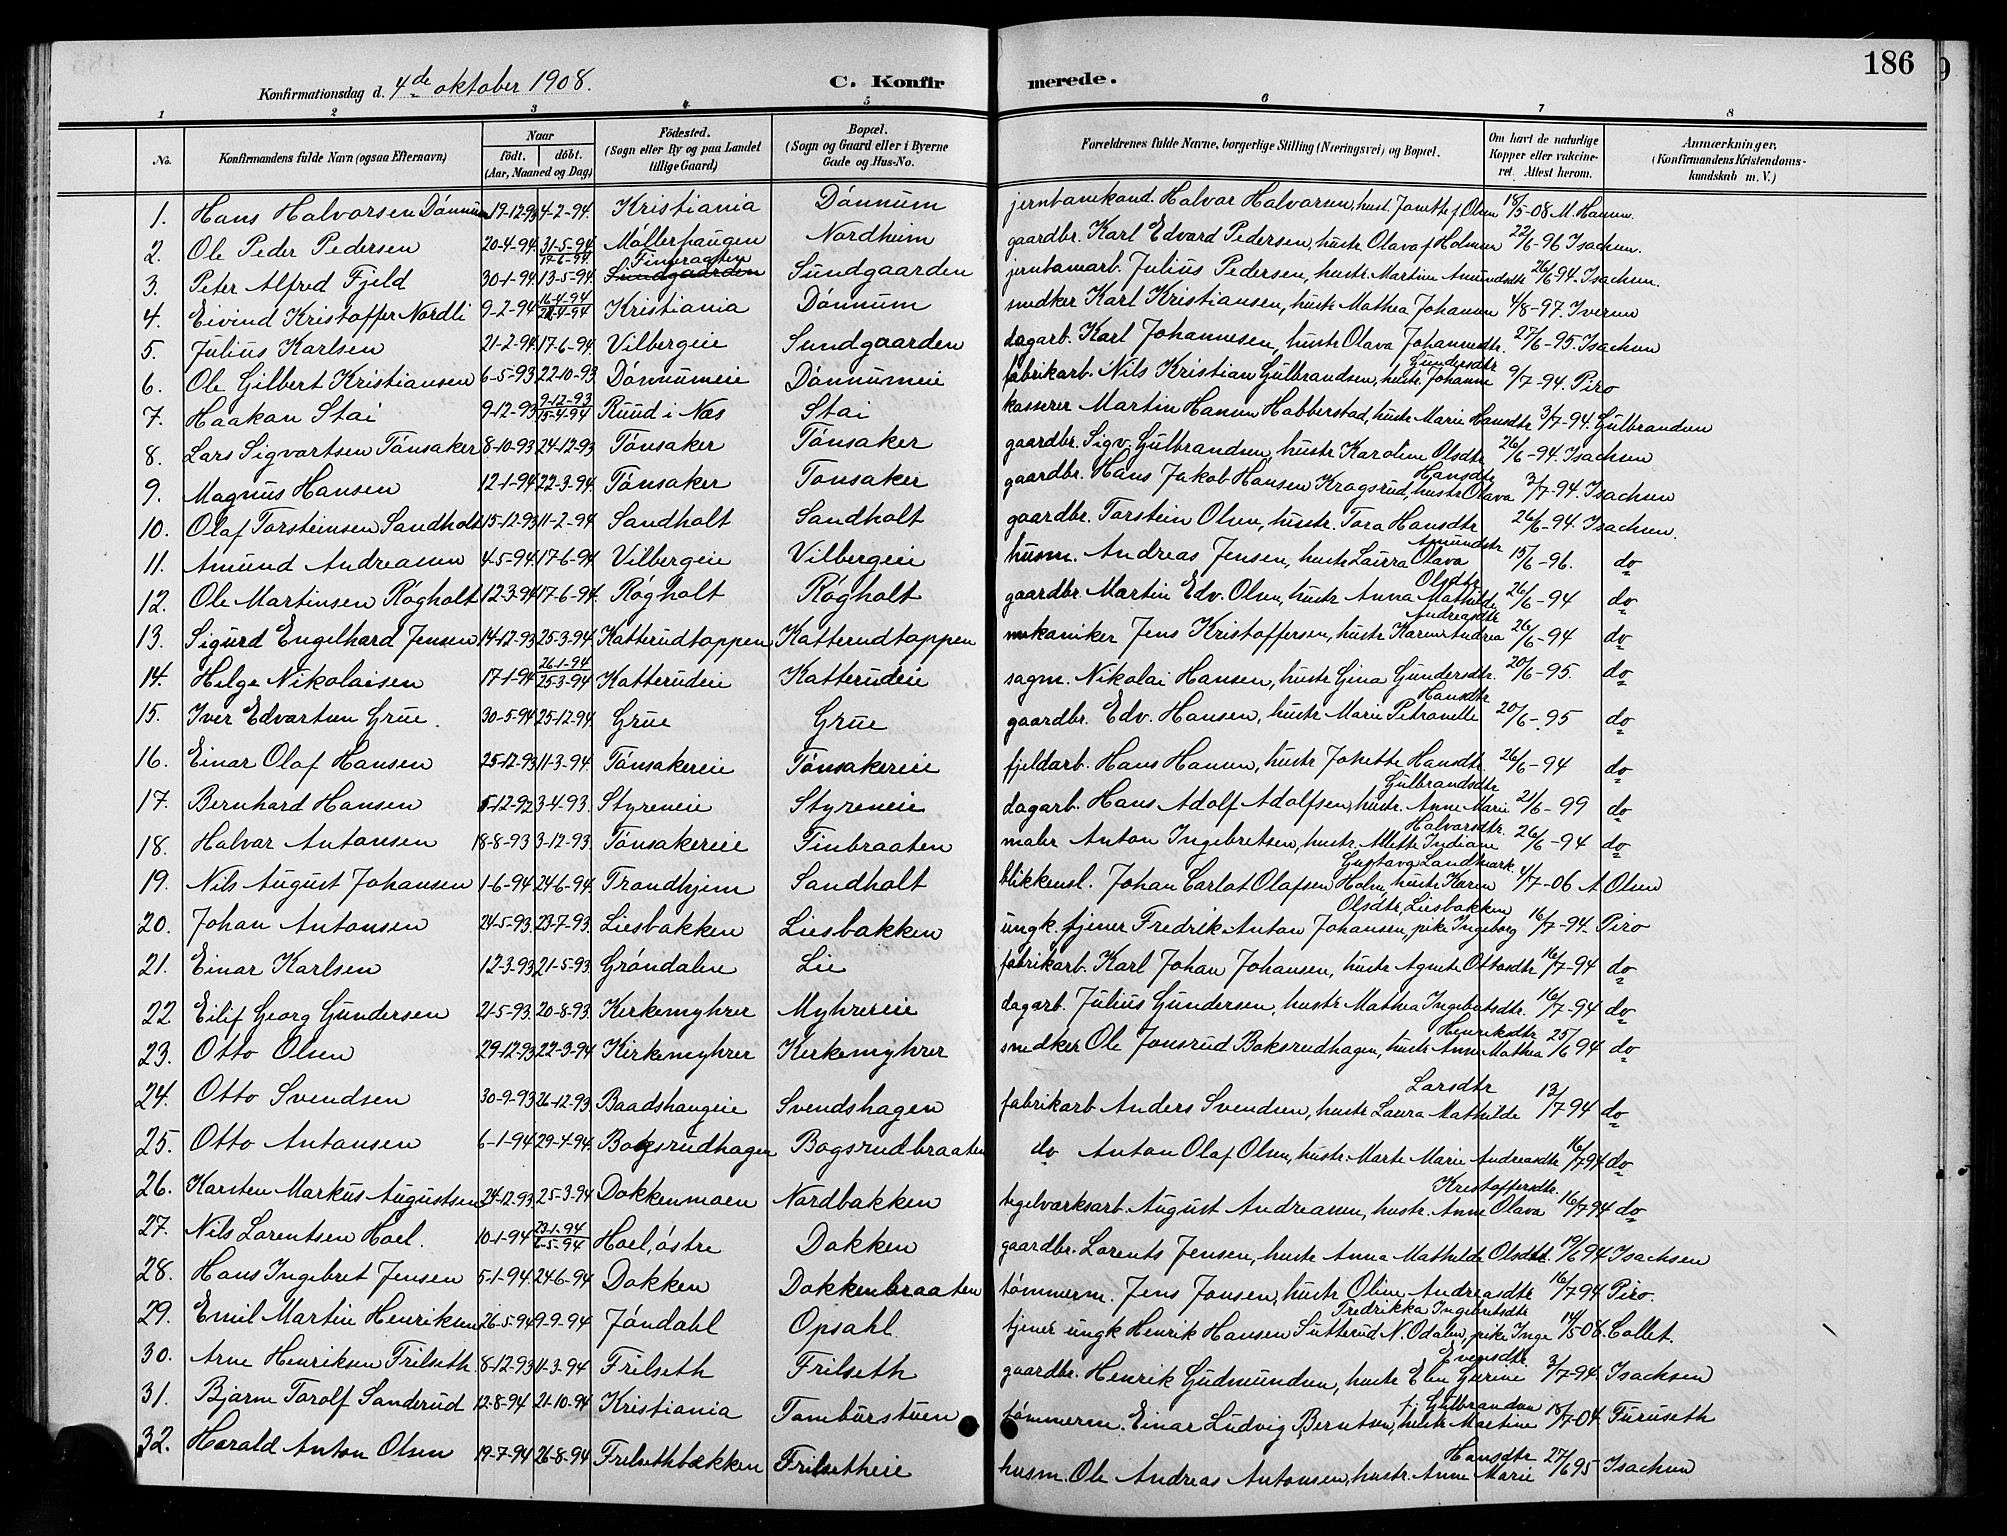 186
Konfirmationsdag d. 4de oktober 1908. C. Konfirmerede.
1 2 3 4 5 6 7 8
No. Konfirmandens fulde Navn (ogsaa Efternavn) Naar født. døbt. (Aar, Maaned og Dag) Fødested. (Sogn eller By og paa Landet tillige Gaard) Bopæl. (Sogn og Gaard eller i Byerne Gade og Hus-No. Forældrenes fulde Navne, borgerlige Stilling (Næringsvei) og Bopæl. Om havt de naturlige Kopper eller vakcineret. Attest herom. Anmærkninger. (Konfirmandens Kristendomskundskab m. V.)
1. Hans Halvorsen Dønnum 19-12-93 4-2-94. Kristiania Dønnum jernbanekand. Halvar Halvorsen, hust. Janette f. Olsen 18/5-08 M. Hansen.
2. Ole Peder Pedersen 20-4-94. 31-5-94 17-6-94. Møllerhaugen Nordheim gaardbr. Karl Edvard Pedersen, hustr Olava f Holmen 22/6-96 Isachsen.
3. Peter Alfred Fjeld 30-1-94. 13-5-94. Finbraaten Sundgaarden Sundgaarden jernbanearb. Julius Pedersen, hustr. Martine Amundsdtr 26/6-94. Isachsen.
4. Eivind Kristoffer Nordli 9-2-94 16-4-94 Kristiania Dønnum snedker Karl Kristiansen, hustr Mathea Johansen 4/8-97. Iversen
5. Julius Karlsen 21-2-94. 17-6-94. Vilbergeie Sundgaarden dagarb. Karl Johannesen, hustr Olava Johannesdtr. 27/6-95. Isachsen
6. Ole Gilbert Kristiansen 6-5-93 22-10-93 Dønnumeie Dønnumeie fabrikarb. Nils Kristian Gulbrandsen, hustr. Johanne Gundersdtr 9/7-94. Piro
7. Haakon Stai 9-12-93 9-12-93 15-4-94 Ruud i Næs Stai kasserer Martin Hansen Habberstad, hustr Marie Hansdtr 3/7-94. Gulbrandsen
8. Lars Sigvartsen Tønsaker 8-10-93 24-12-93 Tønsaker Tønsaker gaardbr. Sigv. Gulbrandsen, hustr Karoline Olsdtr 26/6-94. Isachsen
9. Magnus Hansen 12-1-94 22-3-94. Tønsaker Tonsaker gaardbr. Hans Jakob Hansen Kragsrud, hustr Olava Hansdtr 3/7-94. Isachsen
10. Olaf Torsteinsen Sandholt 15-12-93 11-2-94 Sandholt Sandholt gaardbr. Torstein Olsen, hustr. Tora Hansdtr 26/6-94. Isachsen.
11. Amund Andreassen 4-5-94. 17-6-94 Vilbergeie Vilbergeie husm. Andreas Jensen, hustr Laura Olava Amundstr 15/6-96. do
12. Ole Martinsen Røgholt 12-3-94 17-6-94. Røgholt Røgholt gaardbr. Martin Edv. Olsen, hustr Anna Mathilde Olsdtr 26/6-94 do
13. Sigurd Engelhard Jensen 14-12-93 25-3-94. Katterudtoppen Katterudtoppen mekaniker Jens Kristoffersen, hustr Karen Andrea Andreasdtr 26/6-94 do
14. Helge Nikolaisen 17-1-94 26-1-94 25-3-94 Katterudeie Katterudeie sagm. Nikolai Hansen, hustr Gina Gundersdtr. 20/6-95. do
15. Iver Edvartsen Grue. 30-5-94 25-12-94. Grue Grue gaardbr. Edv. Hansen, hustr Marie Petronelle Hansdtr 20/6-95 do
16. Einar Olaf Hansen 25-12-93 11-3-94. Tønsakereie Tønsakereie fjeldarb. Hans Hansen, hustr Johette Hansdtr 26/6-94 do
17. Bernhard Hansen 5-12-92 3-4-93. Styreneie Styreneie dagarb. Hans Adolf Adolfsen, hustr. Anne Marie Gulbrandsdtr 21/6-99 do
18. Halvar Antonsen 18-8-93 3-12-93. Tønsakereie Finbraaten maler Anton Ingebretsen, hustr. Alette Indiane Halvorsdtr. 26/6-94 do
19. Nils August Johansen 1-6-94. 24-6-94. Trondhjem Sandholt blikkensl. Johan Carlot Olafsen Holm, hustr Karen Gustava Landmark. 4/7-06 A Olsen
20. Johan Antonsen 24-5-93. 23-7-93. Liesbakken Liesbakken ungk. tjener Fredrik Anton Johansen, pike Ingeborg Olsdtr, Liesbakken 16/7-94. Piro
21. Einar Karlsen 12-3-93. 21-5-93. Grøndalen Lie fabrikarb. Karl Johan Johansen, hustr Agnete Ottosdtr 16/7-94 do
22 Eilif Georg Gundersen 21-5-93. 20-8-93. Kirkemyhrer Myhrereie dagarb. Julius Gundersen, hustr Mathea Ingebretsdtr. 16/7-94 do
23. Otto Olsen 29-12-93 22-3-94 Kirkemyhrer Kirkemyhrer snedker Ole Jonsrud Boksrudhagen, hustr Anne Mathea Henriksdtr 25/6 94 do
24. Otto Svendsen 30-9-93. 26-12-93. Baadshaugeie Svendshagen fabrikarb Anders Svendsen, hustr Laura Mathilde Larsdtr 13/7-94 do
25. Otto Antonsen 6-1-94 29-4-94. Bogsrudhagen Bogsrudbraaten do Anton Olaf Olsen, hustr. Marte Marie Andreasdtr 16/7 94 do
26. Karsten Markus Augustsen 24-12-93. 25-3-94. Dokkenmoen Nordbakken teglværksarb. August Andreassen, hustr. Anne Olava Kristoffersdtr. 16/7 94 do
27. Nils Lorentsen Hoel. 10-1-94 23-1-94 6-5-94 Hoel, østre Dokken gaardbr. Lorents Jensen, hustr Anna Mathilde Olsdtr. 19/6 94 Isachsen
28. Hans Ingebret Jensen 5-1-94. 24-6-94 Dokken Dokkenbraaten tømmerm. Jens Jonsen, hustr Oline Andreasdtr 16/7 94 Piro.
29. Emil Martin Henriksen 26-5-94 9-9-94 Jøndahl Opsahl tjener ungk Henrik Hansen Sutterud N. Odalen, pike Inge Fredrikka Ingebretsdtr 14/5 08. Collet.
30. Arne Henriksen Frilseth 8-12-93 11-3-94 Frilseth Frilseth gaardbr. Henrik Gudmundsen, hustr Elen Gurine Evensdtr. 3/7-94. Isachsen
31. Bjarne Torolf Sanderud 12-8-94 21-10-94 Kristiania Tambursturn tømmerm. Einar Ludvig Berntsen, hustr Martine f. Gulbrandsen 18/7-04. Furuseth
32. Harald Anton Olsen 19-7-94 26-8-94 Frilsethbækken Frilsetheie husm. Ole Andreas Antonsen, hustr. Anne Marie Hansdtr 27/6 95 Isachsen